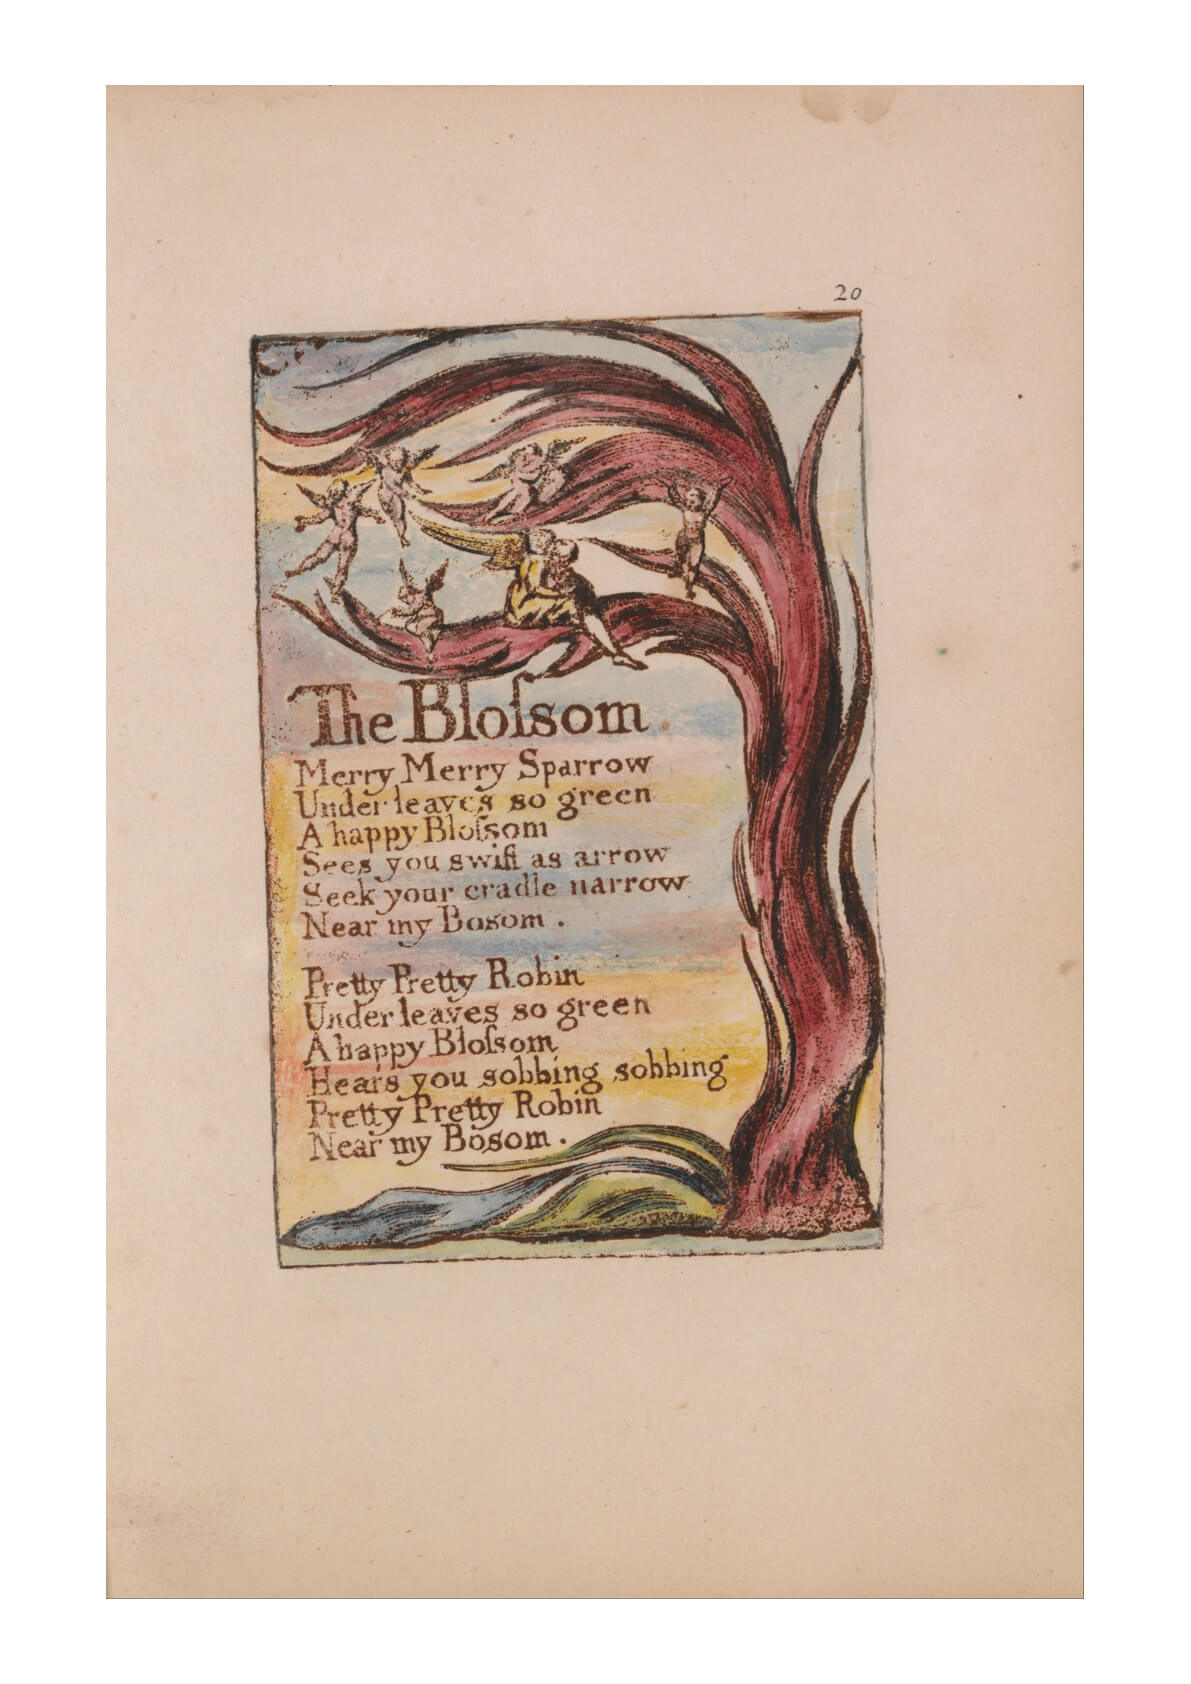 20
The Bloſsom
Merry Merry Sparrow
Under leaves so green
A happy Bloſsom
Sees you swift as arrow
Seek your cradle narrow
Near my Bosom.
Pretty Pretty Robin
Under leaves so green
A happy Bloſsom
Hears you sobbing sobbing
Pretty Pretty Robin
Near my Bosom.